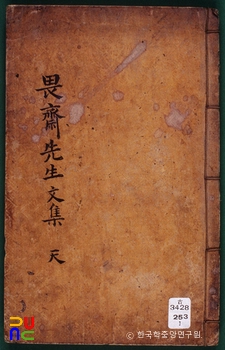 畏齋先生文集 天
3428
253
1
PUNC
© 한국학중앙연구원